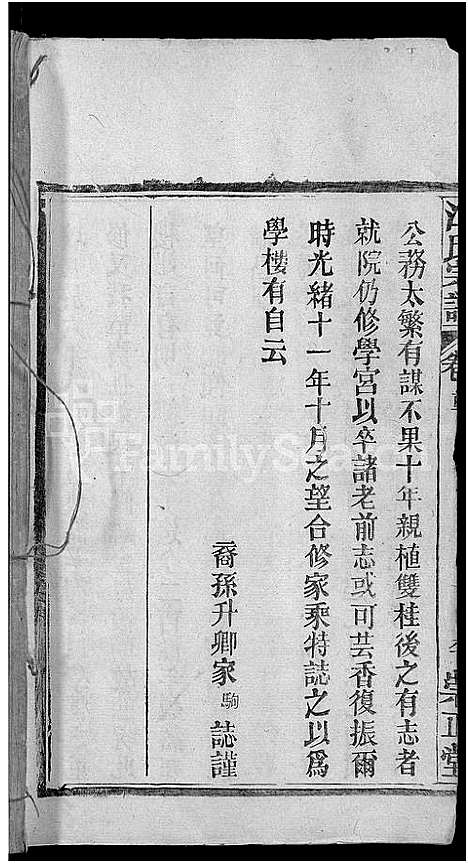 氏宗譜 卷
崇正堂
公務太繁有謀不果十年親植雙桂後之有志者
就院仍修學宮以卒諸老前志或可芸香復振爾
時光緒十一年十月之望合修家乘特誌之以爲
學樓有自云
裔孫升卿家駒誌謹
FamilySearch